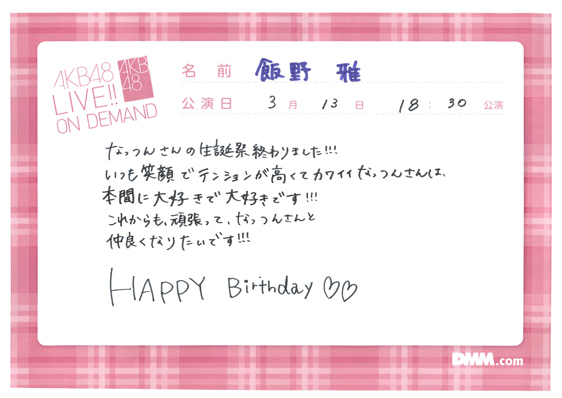 AKB48
LIVE!!
ON DEMAND
AKB
48
名 前 飯野 雅
公演日 3 月 13 日 18 : 30 公演
なっつんさんの生誕祭終わりました!!!
いつも笑顔でテンションが高くてカワイイなっつんさんは、
本間に大好きで大好きです!!!
これからも、頑張って、なっつんさんと
仲良くなりたいです!!!
HAPPY Birthday ♡♡
DMM.com